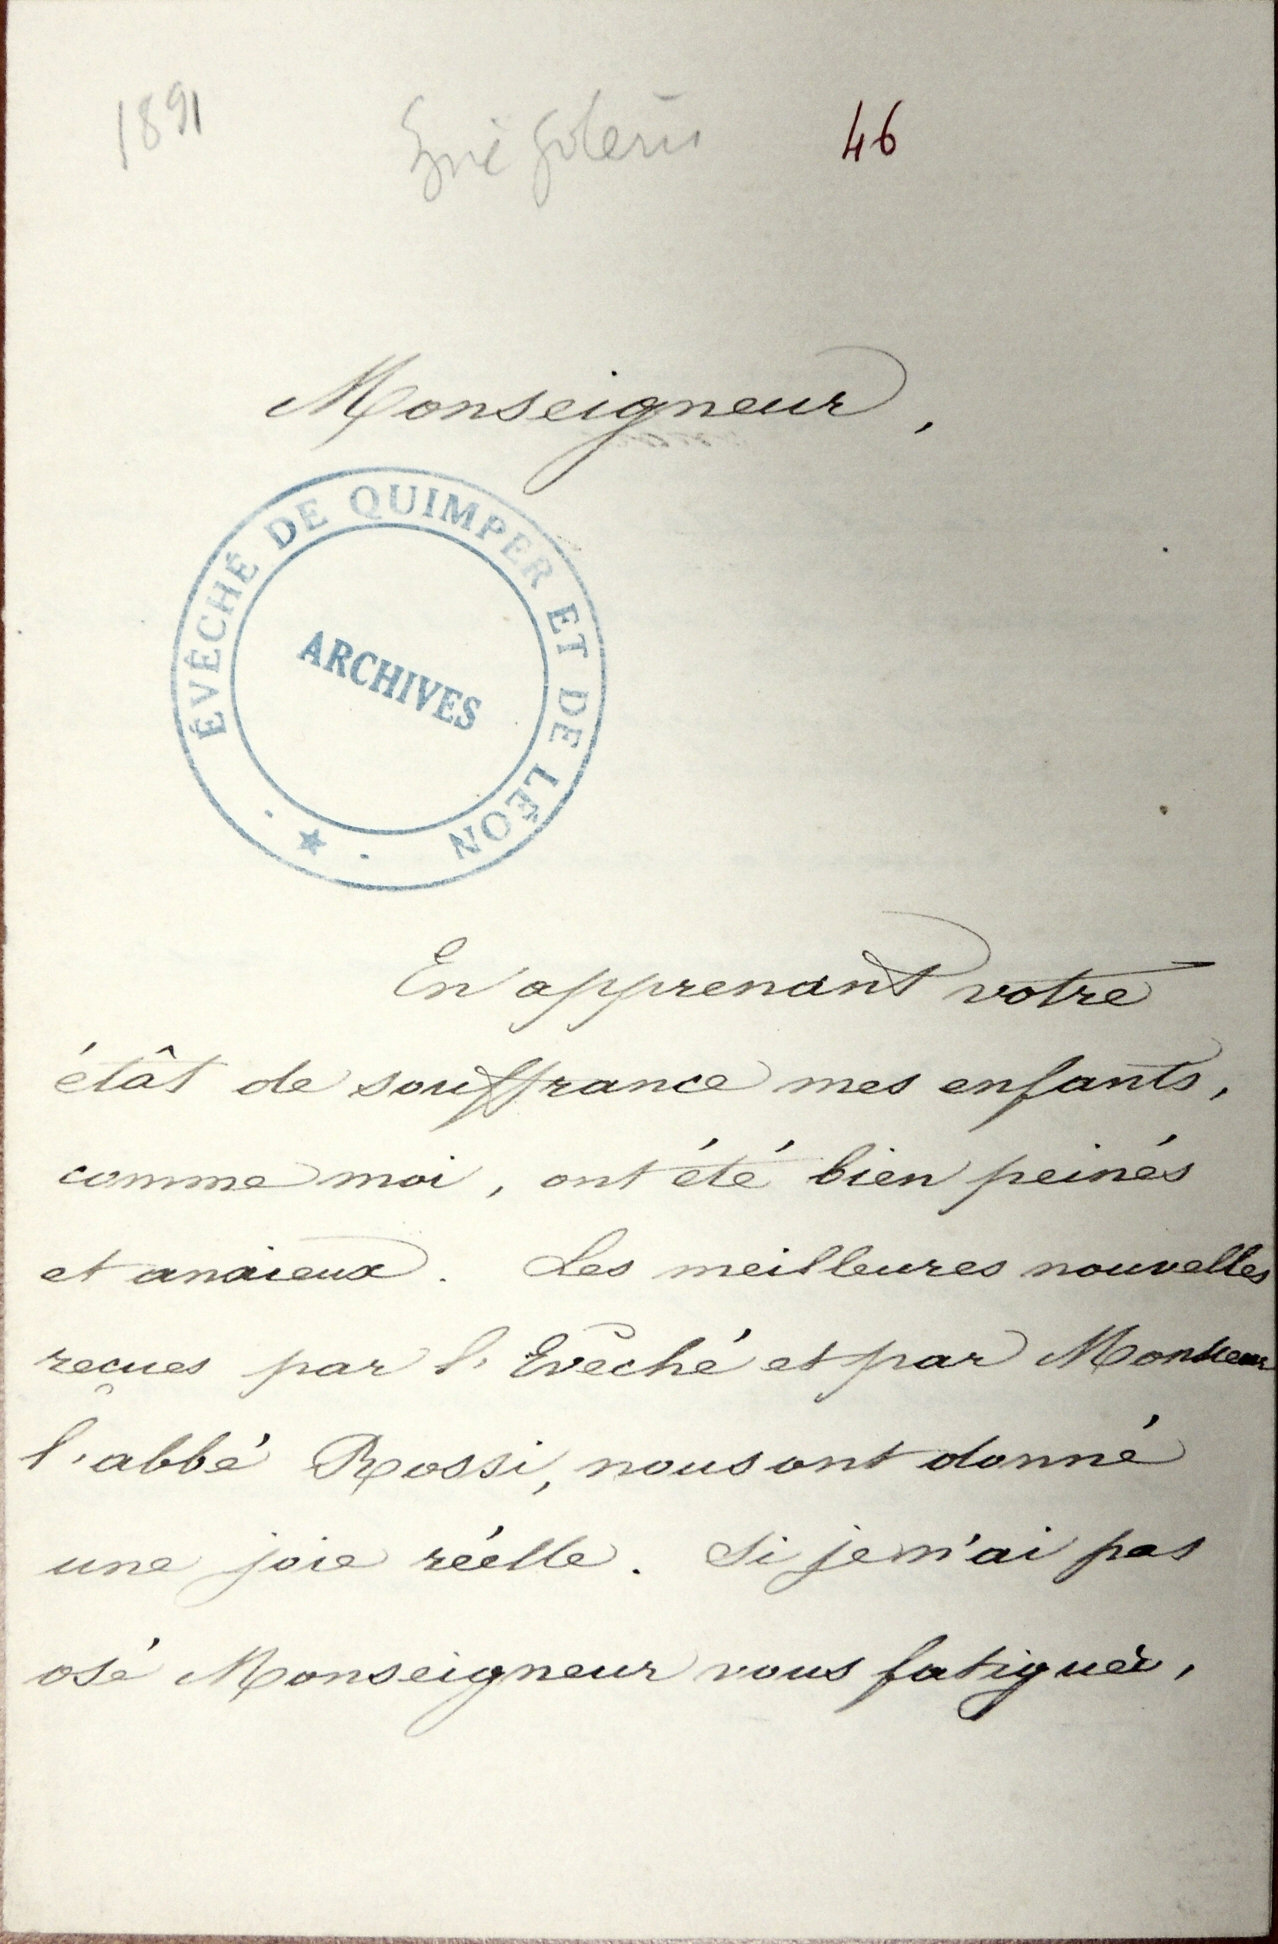 1891
46
Monseigneur,
ÉVÊCHÉ DE QUIMPER ET DE LÉON
ARCHIVES
En apprenant votre
étât de souffrance mes enfants,
comme moi, ont été bien peinés
et anxieux. Les meilleures nouvelles
reçues par l'Evêché et par Monsieur
l'abbé Rossi, nous ont donné
une joie réelle. Si je n'ai pas
osé Monseigneur vous fatiguer,